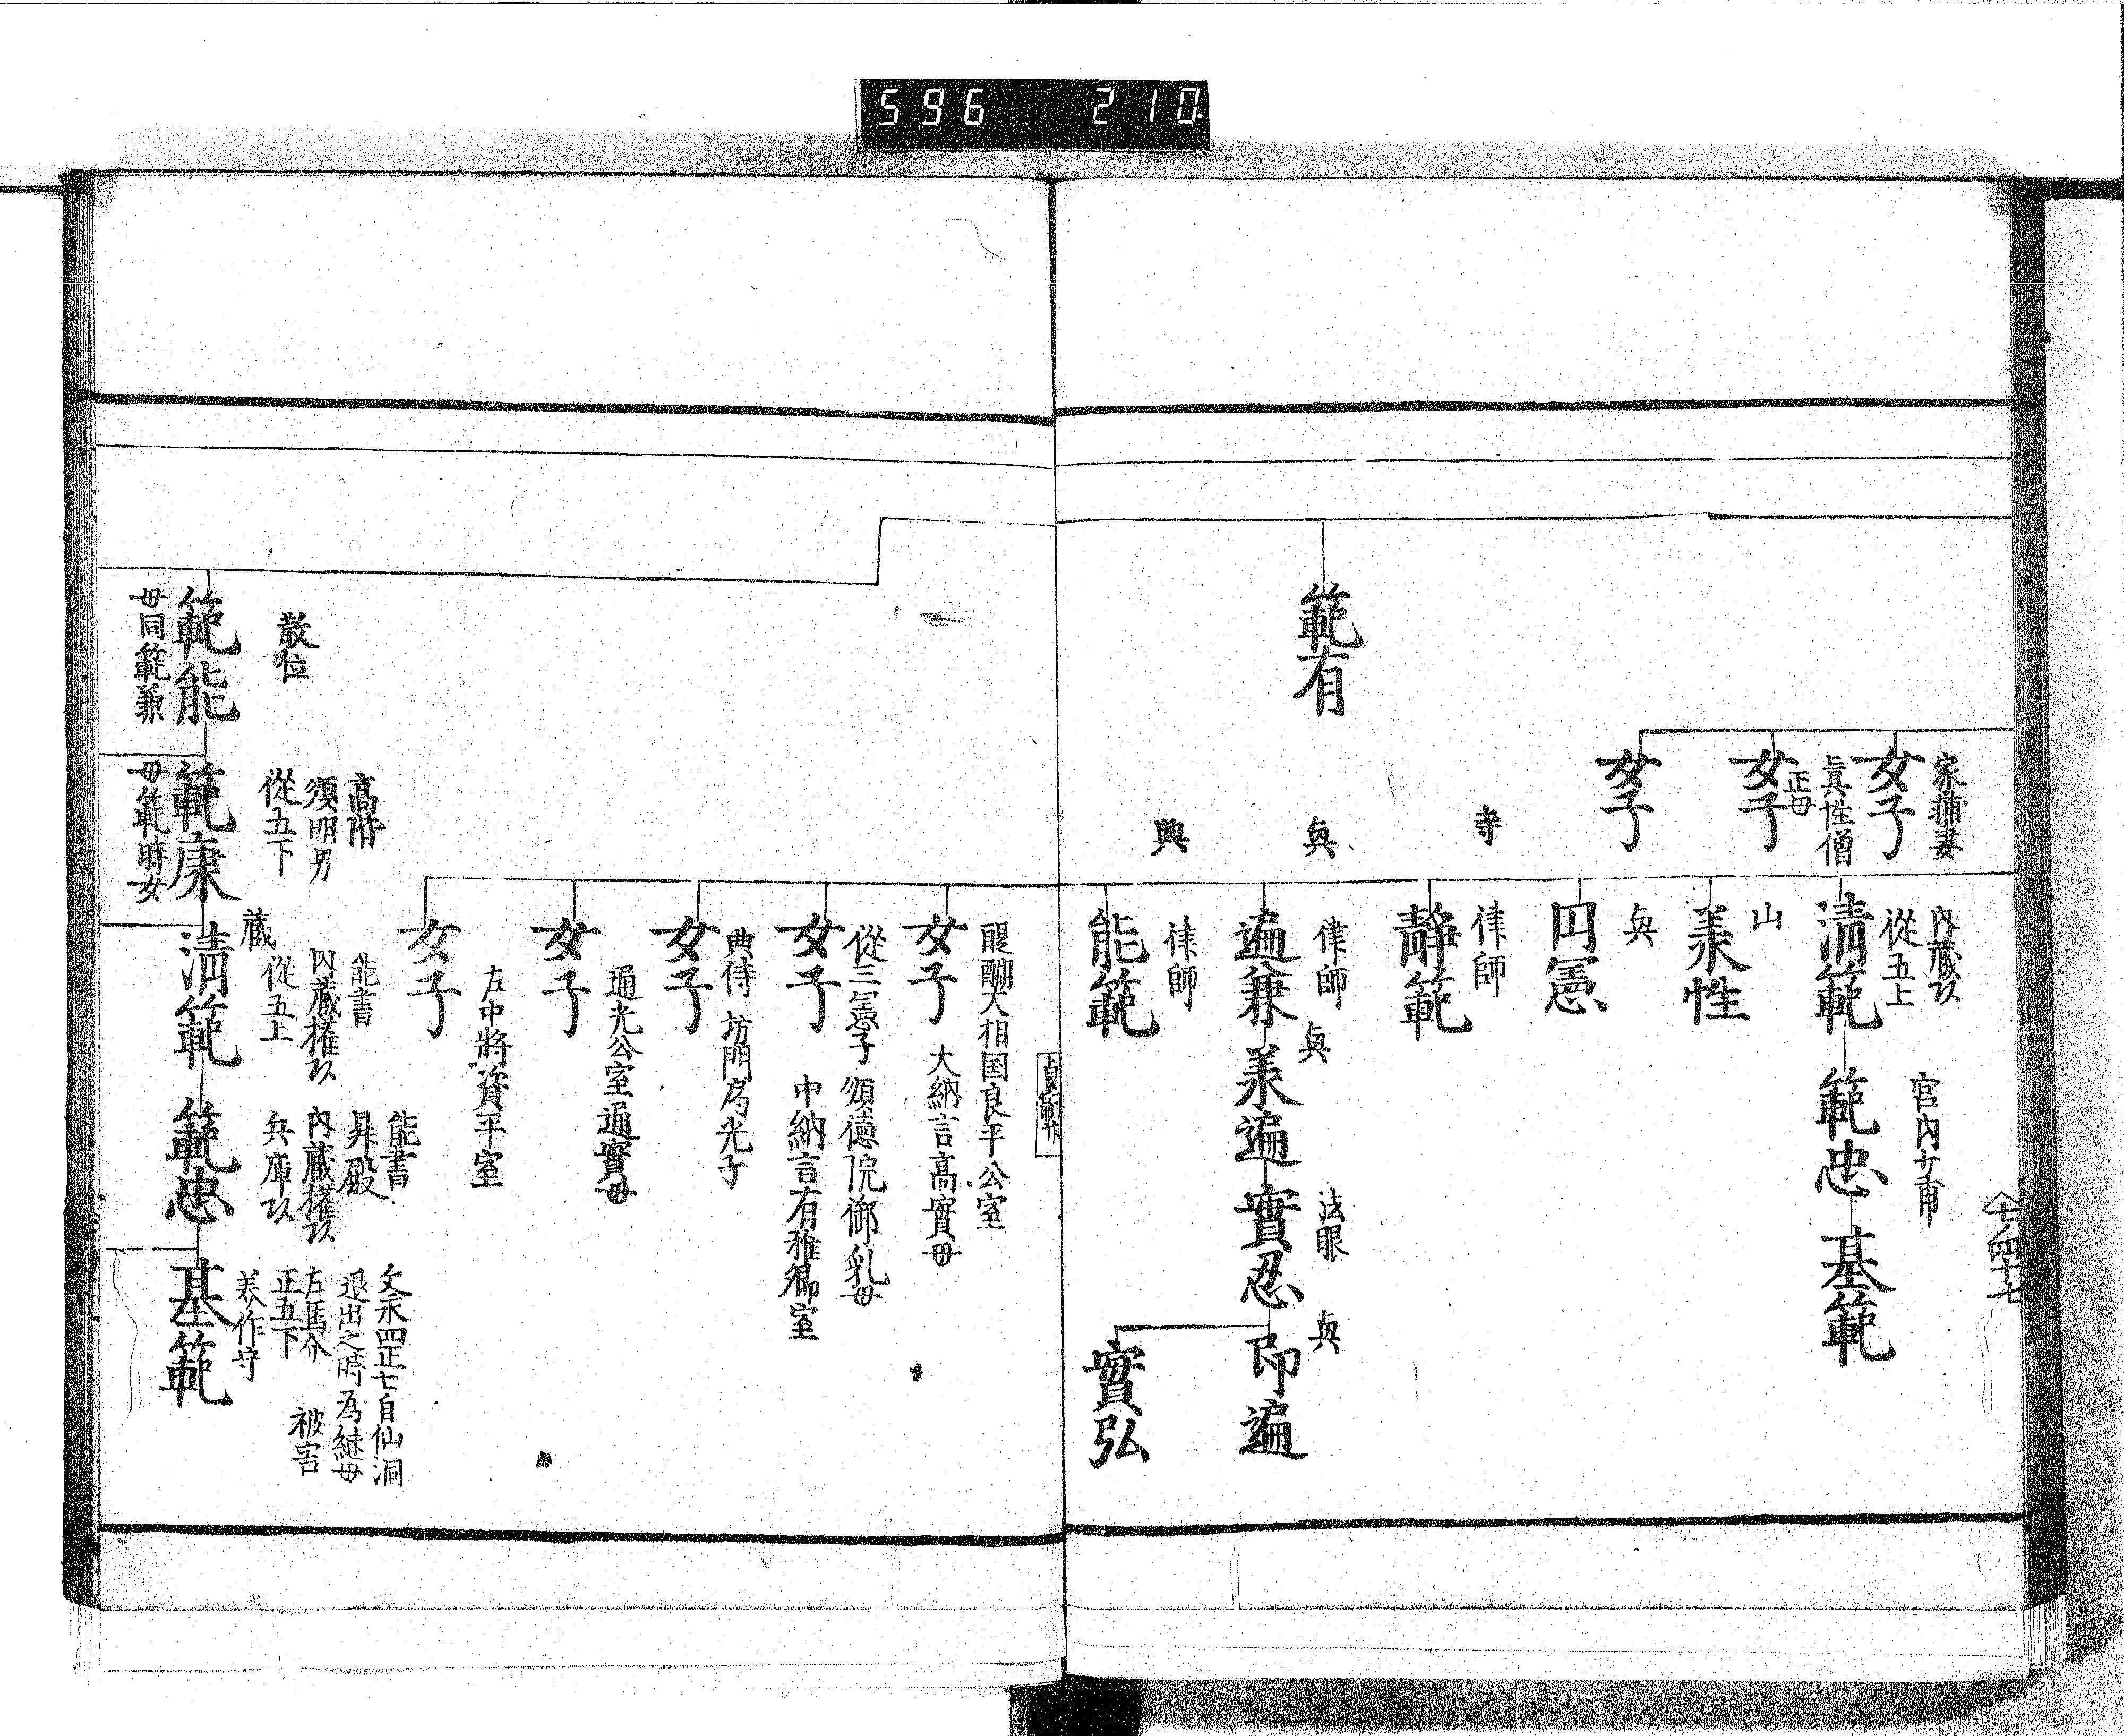 596 210
家蒲妻
女子
真性僧
正母
女子
女子
範有
内蔵
從五上
清範
宮内少甫
範忠
基範
山
兼性
與
円憲
寺
律師
静範
與
律師
遍兼
與
兼遍
法眼
實忍
與
印遍
實弘
興
律師
能範
醍醐大相国良平公室
女子
大納言高實母
從三憲子 順徳院御乳母
女子
中納言有雅卿室
典侍 坊門為光子
女子
通光公室通實母
女子
左中將資平室
女子
散位
範能
母同範兼
高階
須明男
從五下
範康
母範時女
能書
内蔵権
從五上
蔵
清範
能書
昇殿
内蔵権
兵庫
範忠
文永四正七自仙洞
退出之時為継母
被害
左馬介
正五下
美作守
基範